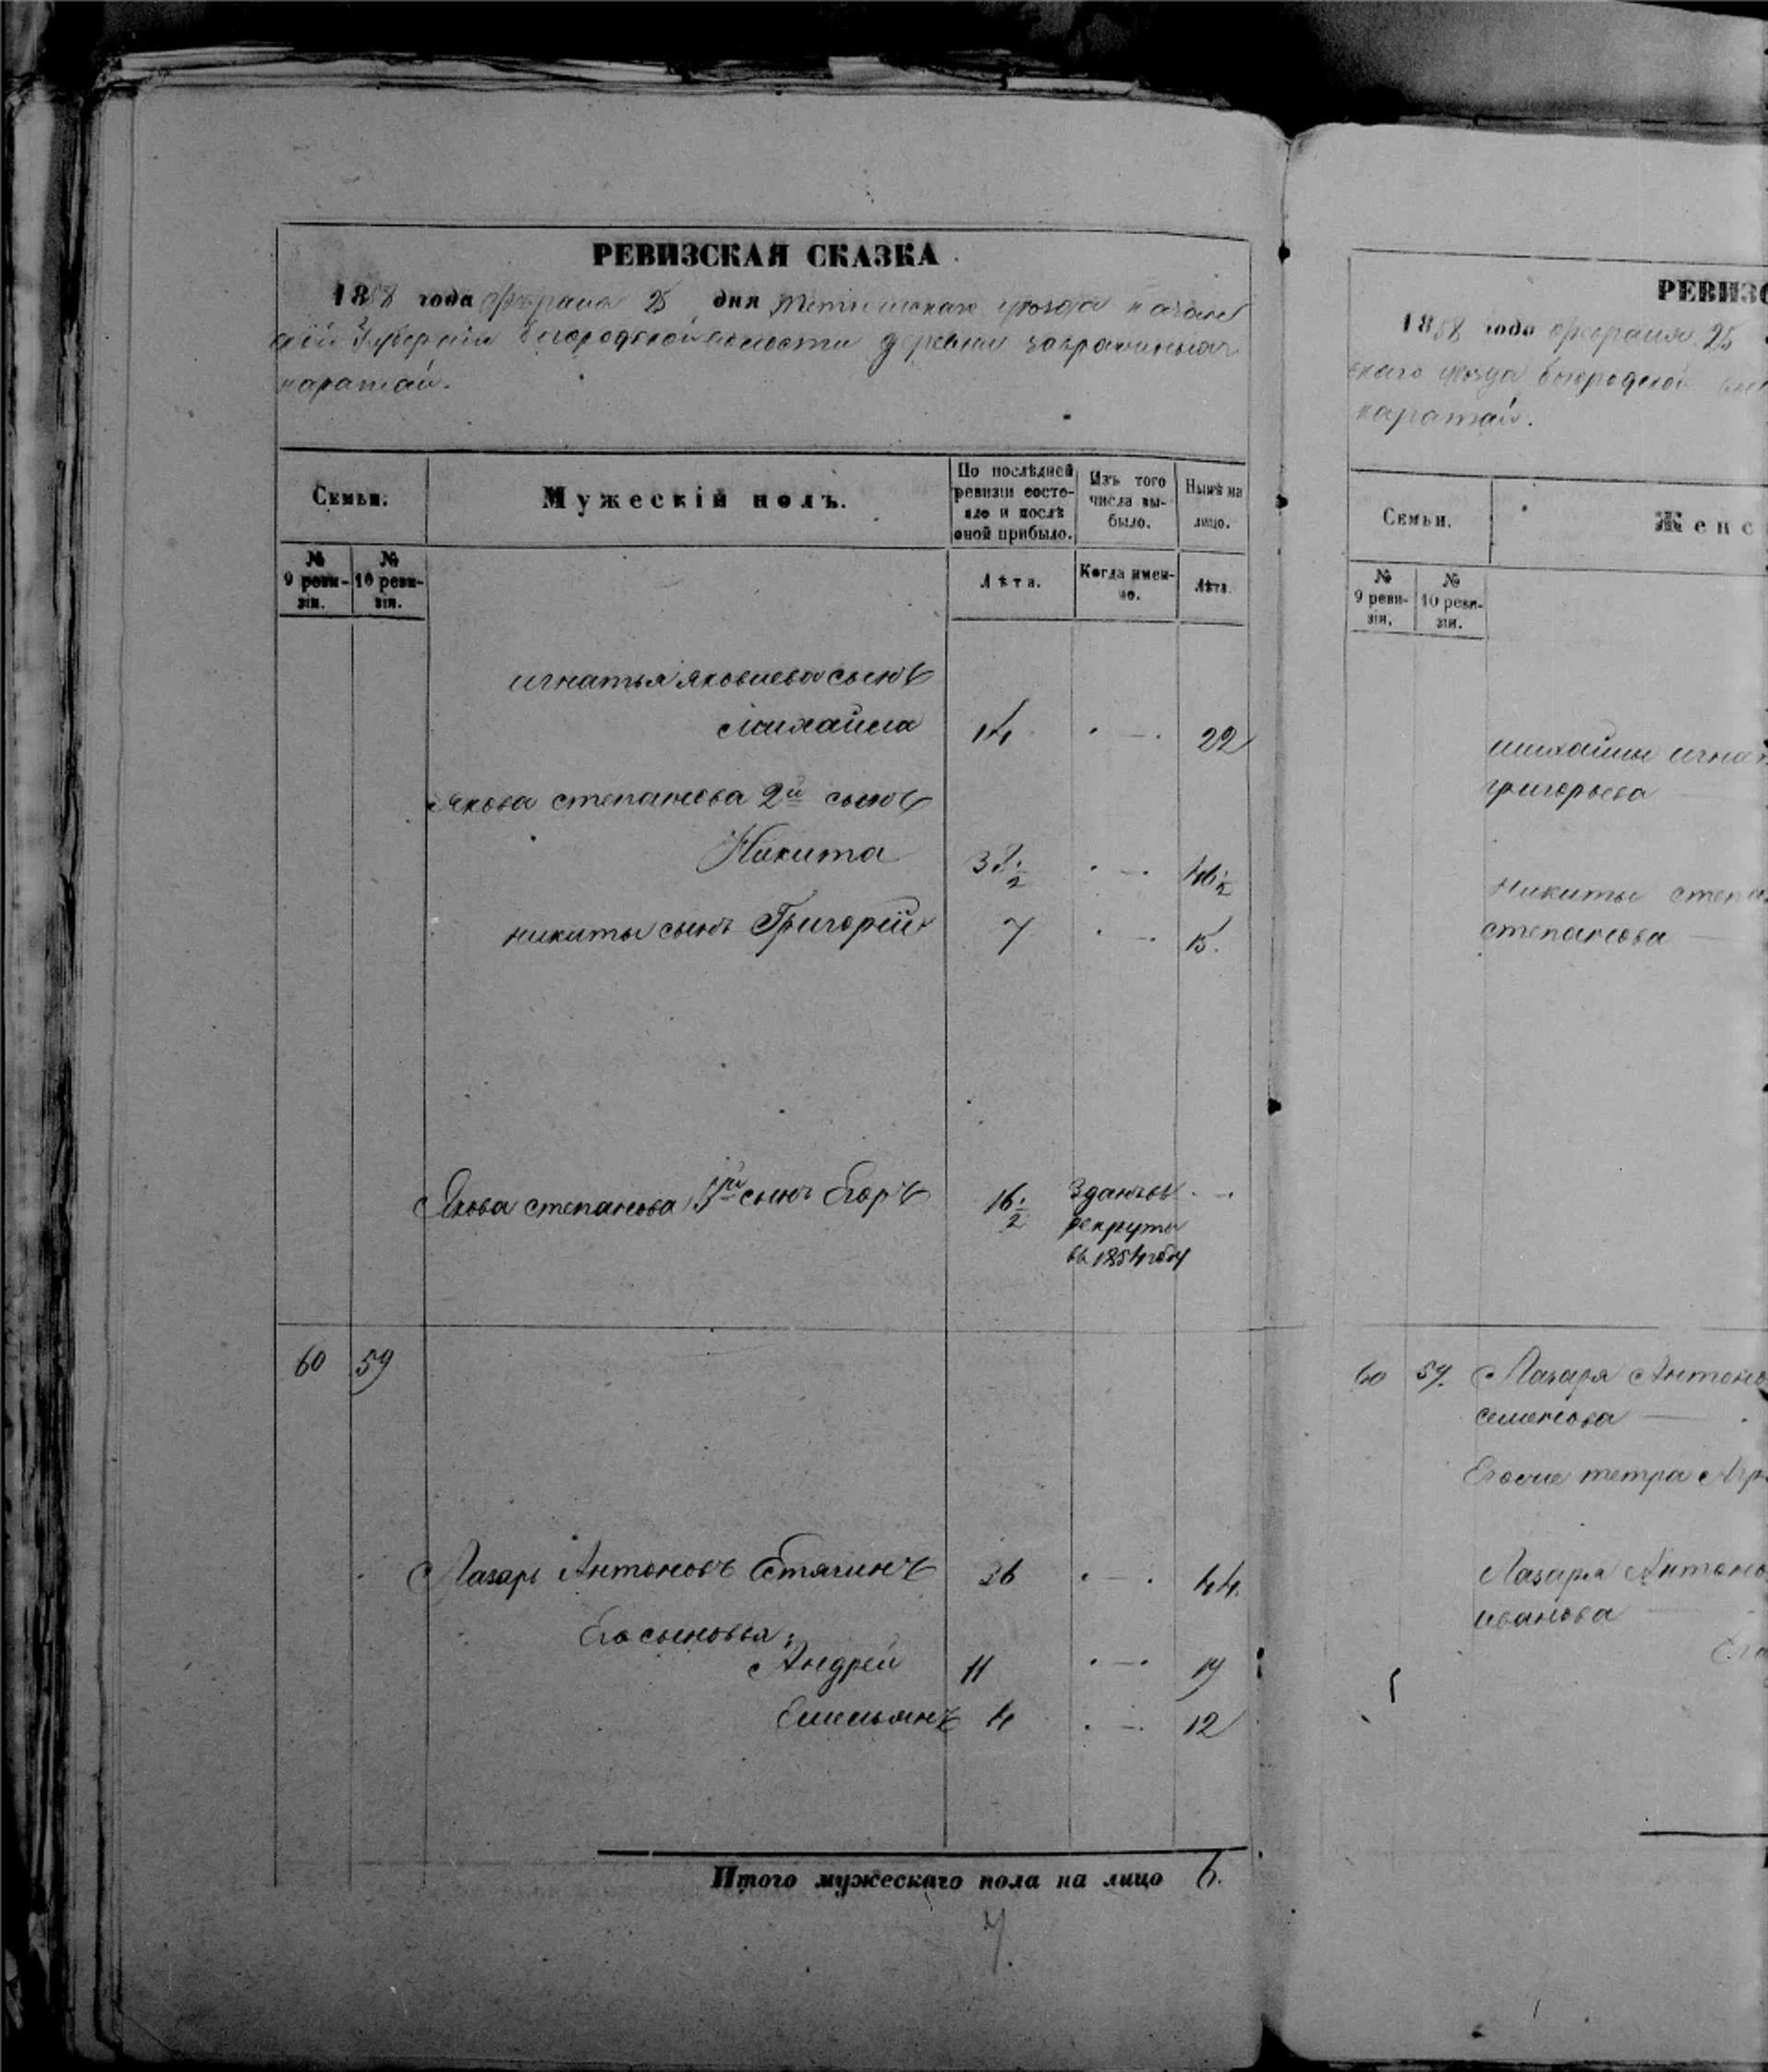 РЕВИЗСКАЯ СКАЗКА
1858 года февраля 25 дня Тетюшскаго уѣзда казан
ской Губерніи богородской волости деревни
каратай.
Семьи.
Мужескій полъ.
По послѣдней ревизіи состояло и послѣ оной прибыло.
Изъ того числа выбыло.
Нынѣ на лицо.
№ 9 ревизіи.
№ 10 ревизіи.
Лѣта.
Когда именно.
Лѣта.
игнатья яковлева сынъ
михайла 14 · — · 22
якова степанова 2й сынъ
Никита · — · 46½
никиты сынъ Григорій 7 · — · 15.
Якова степанова 3й сынъ Егоръ 16½ зданъ въ · —
рекруты
въ 1854 году
60 59
Лазарь Антоновъ 36 · — · 44.
Его сыновья:
Андрей 11 · — · 19
Емельянъ 4 · — · 12
Итого мужескаго пола на лицо 6.
7.
РЕВИЗС
1858 года февраля 25
скаго уѣзда богородской
каратай.
Семьи.
Женс
№ 9 ревизіи.
№ 10 ревизіи.
михайлы игнат
григорьева —
Никиты степа
степанова —
60 59. Лазаря Антоно
семенова —
Лазаря Антоно
иванова —